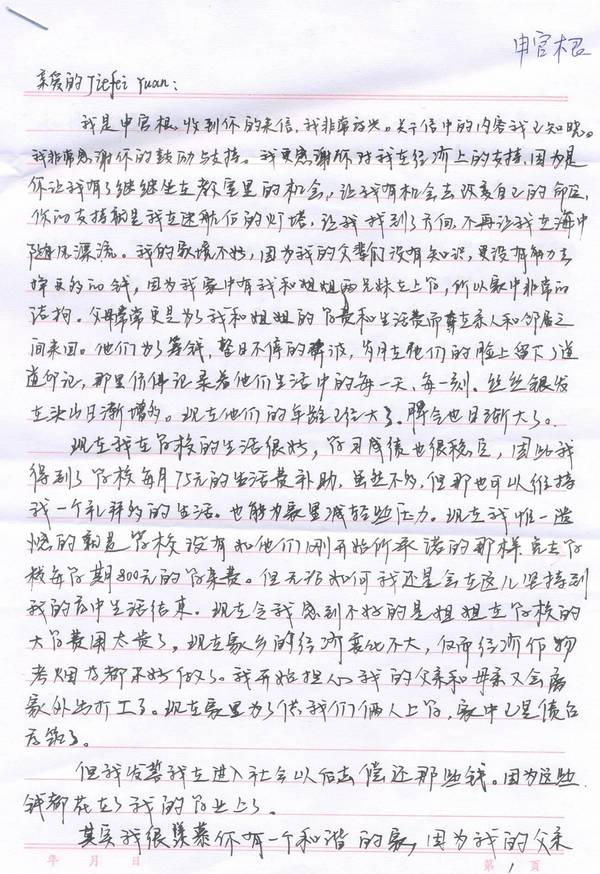 申官根
亲爱的Jiefei Yuan:
我是申官根,收到你的来信,我非常高兴。关于信中的内容我已知晓。
我非常感谢你的鼓励与支持。我更感谢你对我在经济上的支持,因为是
你让我有了继继坐在教室里的机会,让我有机会去改变自己的命运,
你的支持就是我在迷航后的灯塔,让我找到了方向,不再让我在海中
随风漂流。我的家境不好,因为我的父辈们没有知识,更没有能力去
挣更多的钱,因为我家中有我和姐姐两兄妹在上学,所以家中非常的
拮拘。父母常常更是为了我和姐姐的学费和生活费而奔在亲人和邻居之
间来回。他们为了筹钱,整日不停的奔波,岁月在他们的脸上留下了道
道印记,那里仿佛记录着他们生活中的每一天、每一刻。丝丝银发
在头山日渐增多。现在他们的年龄已经大了。脾气也日渐大了。
现在我在学校的生活很好,学习成绩也很稳定,因此我
得到了学校每月75元的生活费补助,虽然不多,但那也可以维持
我一个礼拜多的生活。也能为家里减轻些压力。现在我惟一遗
憾的就是学校没有和他们刚开始所承诺的那样免去学
校每学期800元的学杂费。但无论如何我还是会在这儿坚持到
我的高中生活结束。现在令我感到不好的是姐姐在学校的
大学费用太贵了,现在家乡的经济变化不大,仅而经济作物
考烟才都不好做了。我开始担心我的父亲和母亲又会离
家外出打工了。现在家里为了供我们俩人上学,家中已是债台
高筑了。
但我发誓我在进入社会以后去偿还那些钱。因为这些
钱都花在了我的学业上了。
其实我很羡慕你有一个和谐的家,因为我的父亲
年 月 日 第 1 页